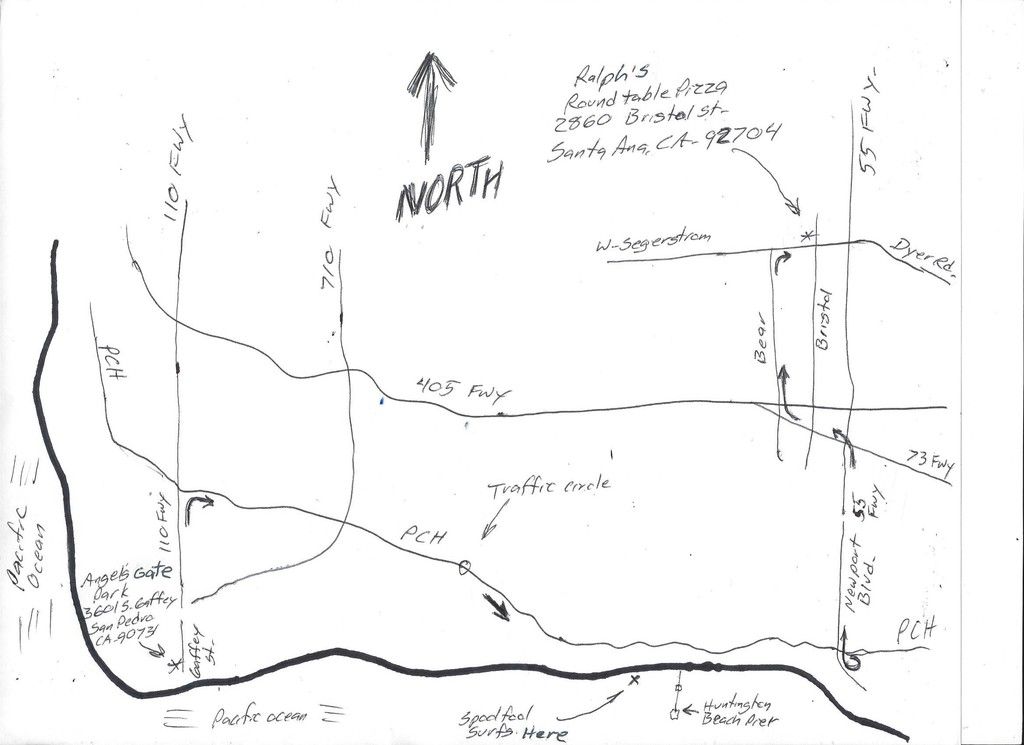 Ralph's
Round table Pizza
2860 Bristol St-
Santa Ana, CA- 92704
NORTH
110 FWY
710 FWY
55 FWY-
W-Segerstrom
Dyer Rd.
PCH
Bear
Bristol
405 FWY
73 FWY
Traffic circle
PCH
110 FWY
Newport
Blvd.
55
FWY
Pacific
Ocean
Angel's GATE
Park
3601 S. Gaffey
San Pedro
CA-90731
Gaffey
St-
PCH
Pacific Ocean
Spoolfool
Surfs Here
Huntington
Beach Pier